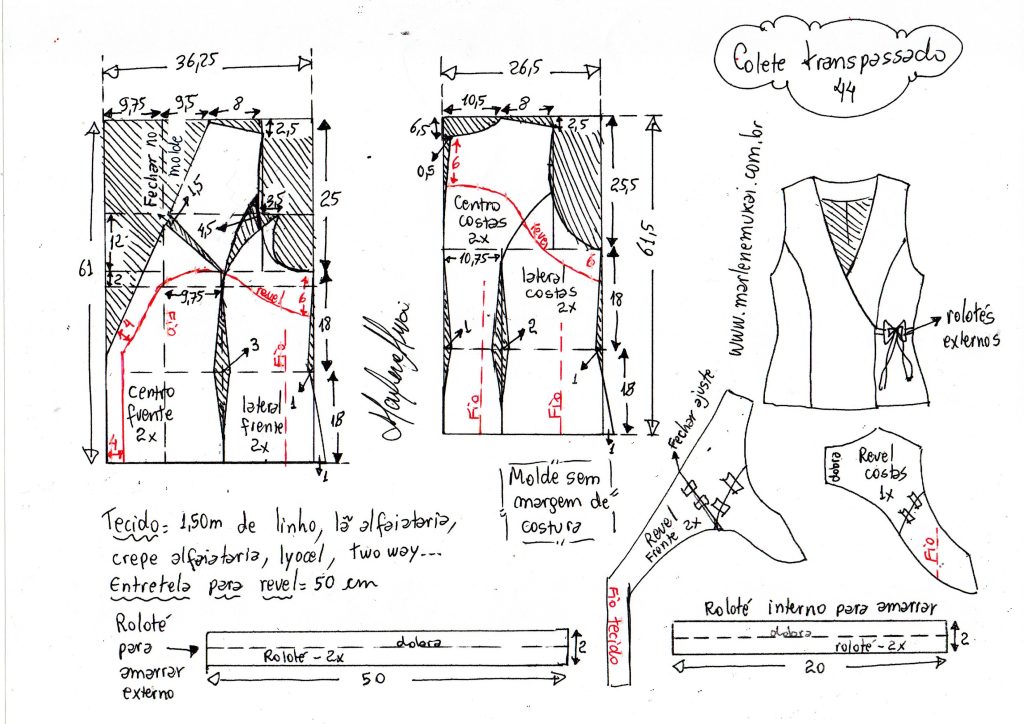 Colete transpassado
44
www.marlenemukai.com.br
36,25
9,75
9,5
8
2,5
Fechar no
molde
1,5
3,5
4,5
25
12
2
61
9,75
revel
6
4
Fio
18
3
Fio
1
centro
frente
2x
lateral
frente
2x
18
4
1
Marlene Mukai
26,5
10,5
8
6,5
2,5
0,5
6
25,5
centro
costas
2x
revel
61,5
10,75
6
lateral
costas
2x
18
1
2
1
Fio
Fio
18
1
rolotés
externos
Molde sem
margem de
costura
Fechar ajuste
Revel
Frente 2x
Fio tecido
dobra
Revel
costas
1x
Fio
Tecido= 1,50m de linho, lã alfaiataria,
crepe alfaiataria, lyocel, two way...
Entretela para revel= 50 cm
Roloté
para
amarrar
externo
dobra
Roloté - 2x
2
50
Roloté interno para amarrar
dobra
roloté - 2x
2
20